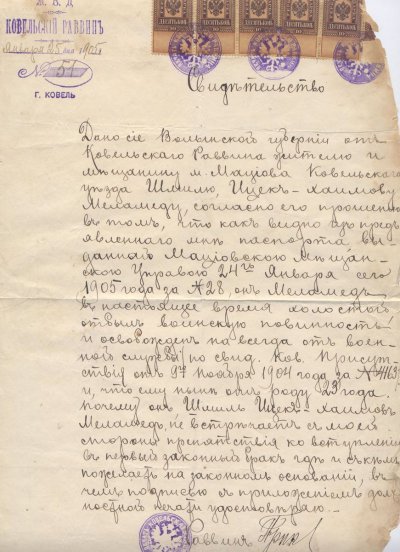 М. В. Д.
КОВЕЛЬСКІЙ РАВВИНЪ
Января 25 дня 1905 г.
№ 51
Г. КОВЕЛЬ
Свидѣтельство
Дано сіе Волынской губерніи отъ
Ковельскаго Раввина жителю и
мѣщанину м. Маціова Ковельскаго
уѣзда Шмилю, Ицекъ-Хаимову
Меламеду, согласно его прошенію
въ томъ, что какъ видно изъ предъ
явленнаго мнѣ паспорта, вы
даннаго Маціовскою Мѣщан
скою Управою 24го Января сего
1905 года за № 28, онъ Меламедъ
въ настоящее время холостый
отбылъ воинскую повинность
и освобожденъ на всегда отъ воен
ной службы по свид. Ков. Присут
ствія отъ 9го Ноября 1904 года за №
и, что ему нынѣ отъ роду 23 года.
Почему онъ Шмиль Ицекъ-Хаимовъ
Меламедъ, не встрѣчаетъ съ моей
стороны препятствія ко вступленію
въ первый законный бракъ гдѣ и съ кѣмъ
пожелаетъ на законномъ основаніи, въ
чемъ подписью съ приложеніемъ долж
ностной печати удостовѣряю.
Раввинъ